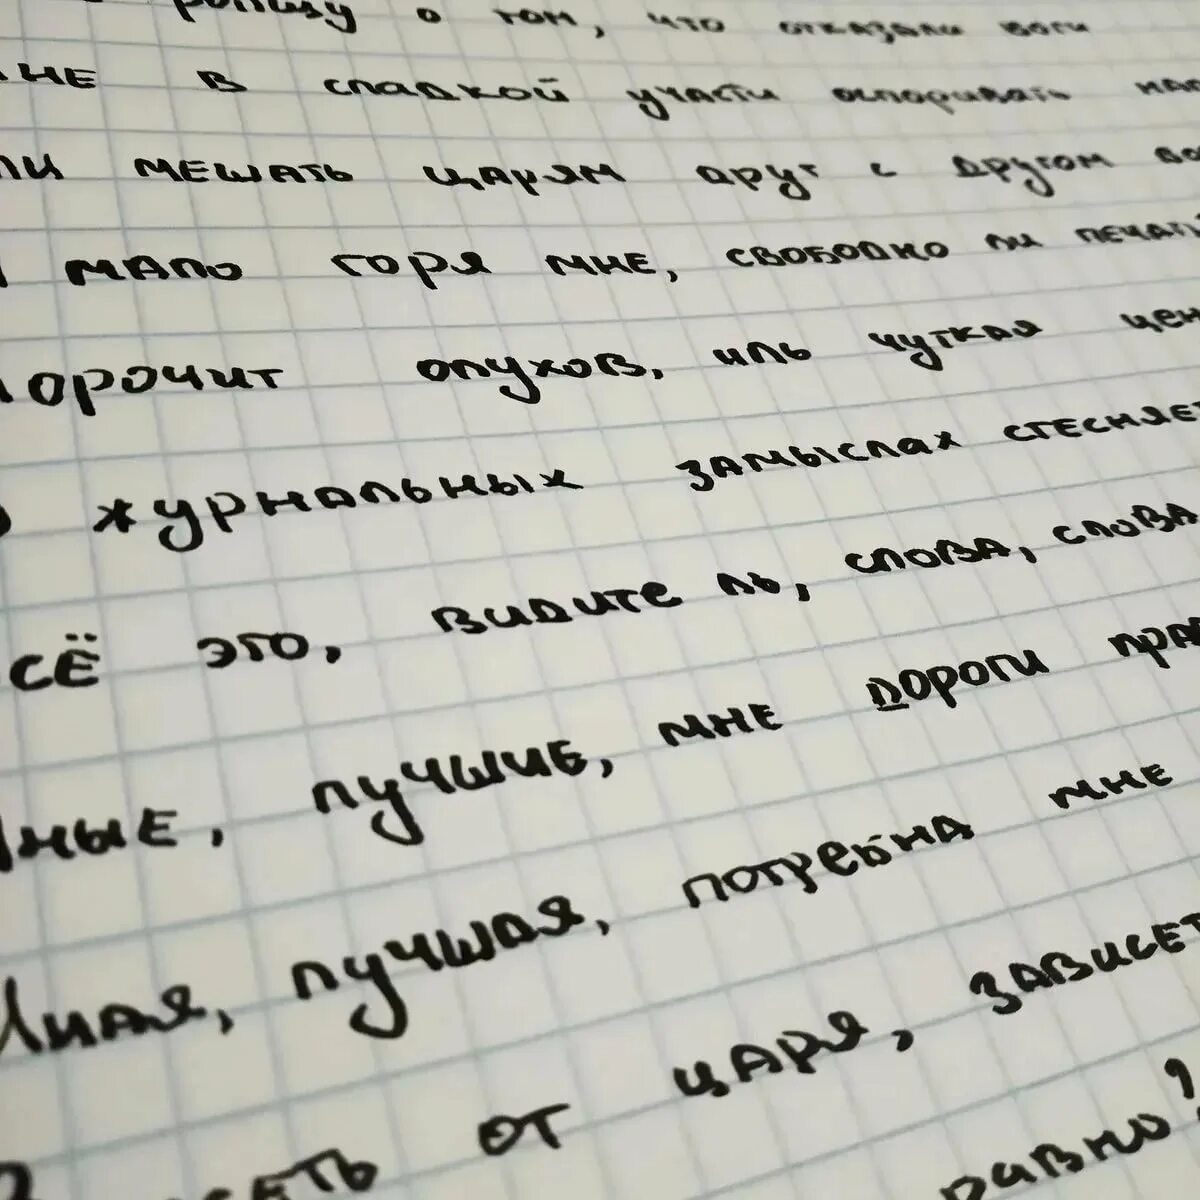 ропщу о том, что отказали боги
мне в сладкой участи оспоривать
мешать царям друг с другом
мало горя мне, свободно ли печать
морочит олухов, иль чуткая цен
журнальных замыслах стесняет
всё это, видите ль, слова, слова
Иные, лучшие, мне дороги пра
Иная, лучшая, потребна мне
от царя, зависет
равно?